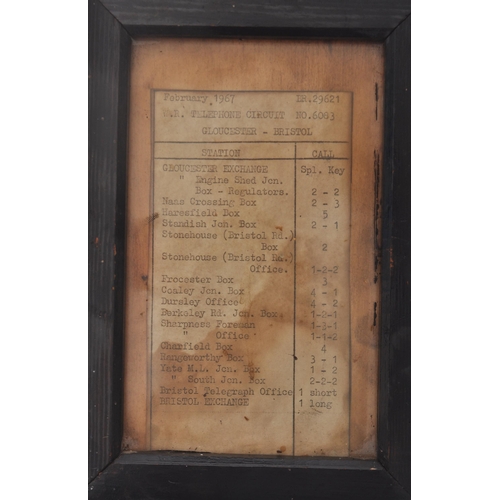 February 1967 DR.29621
B.R. TELEPHONE CIRCUIT NO.6063
GLOUCESTER - BRISTOL
STATION CALL
GLOUCESTER EXCHANGE Spl. Key
" Engine Shed Jcn.
Box - Regulators. 2 - 2
Naas Crossing Box 2 - 3
Haresfield Box 5
Standish Jcn. Box 2 - 1
Stonehouse (Bristol Rd.)
Box 2
Stonehouse (Bristol Rd.)
Office. 1-2-2
Frocester Box 3
Coaley Jcn. Box 4 - 1
Dursley Office 4 - 2
Berkeley Rd. Jcn. Box 1-2-1
Sharpness Foreman 1-3-1
" Office 1-1-2
Charfield Box 4
Rangeworthy Box 3 - 1
Yate M.L. Jcn. Box 1 - 2
" South Jcn. Box 2-2-2
Bristol Telegraph Office 1 short
BRISTOL EXCHANGE 1 long